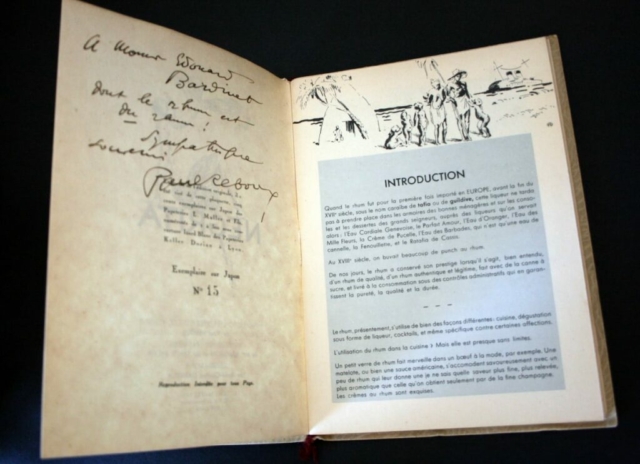 A Monsieur Edouard
Bardinet
dont le rhum est
du rhum !
Sympathique
souvenir
Paul Reboux
Exemplaire sur Japon
N° 15
Reproduction Interdite pour tous Pays.
INTRODUCTION
Quand le rhum fut pour la première fois importé en EUROPE, avant la fin du
XVIIe siècle, sous le nom caraïbe de tafia ou de guildive, cette liqueur ne tarda
pas à prendre place dans les armoires des bonnes ménagères et sur les
les et les dessertes des grands seigneurs, auprès des liqueurs qu'on servait
alors : l'Eau Cordiale Genevoise, le Parfait Amour, l'Eau de
Mille Fleurs, la Crème de Pucelle, l'Eau d'Oranger, l'Eau des
Barbades, qui n'est qu'une eau de
cannelle, la Fenouillette, et le Ratafia de Cassis.
Au XVIIIe siècle, on buvait beaucoup de punch au rhum.
De nos jours, le rhum a conservé son prestige lorsqu'il s'agit, bien entendu,
d'un rhum de qualité, d'un rhum authentique et légitime, fait avec de la canne à
sucre, et livré à la consommation sous des contrôles administratifs qui en garan-
tissent la pureté, la qualité et la durée.
Le rhum, présentement, s'utilise de bien des façons différentes: cuisine, dégustation
sous forme de liqueur, cocktails, et même spécifique contre certaines affections.
L'utilisation du rhum dans la cuisine ? Mais elle est presque sans limites.
Un petit verre de rhum fait merveille dans un bœuf à la mode, par exemple. Une
matelote, ou bien une sauce américaine, s'accommodent savoureusement avec un
peu de rhum qui leur donne une je ne sais quelle saveur plus fine, plus relevée,
plus aromatique que celle qu'on obtient seulement par de la fine champagne.
Les crèmes au rhum sont exquises.